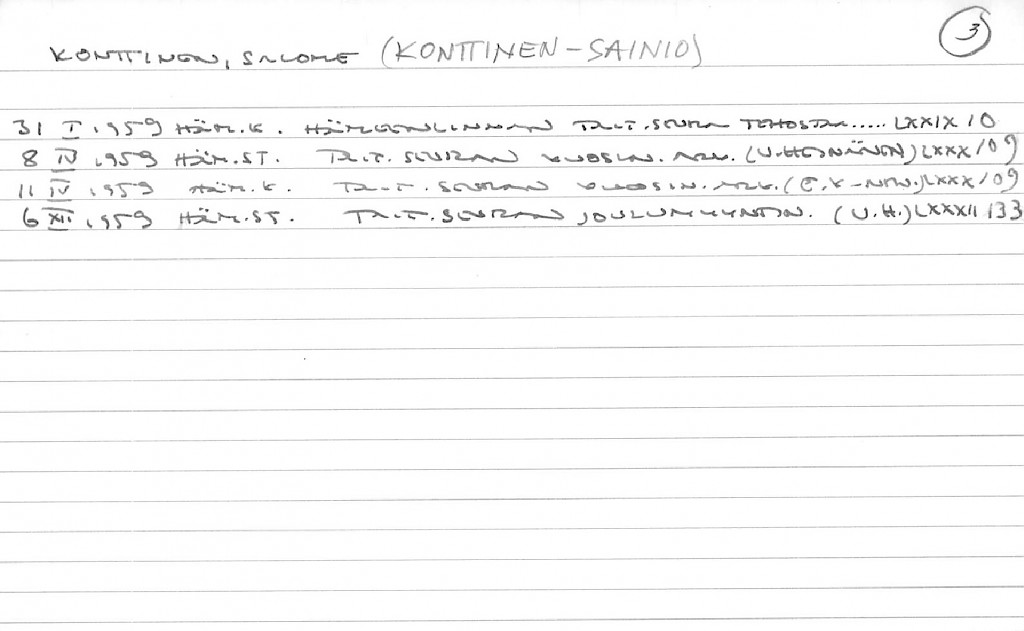 3
KONTTINEN, SALOME (KONTTINEN-SAINIO)
31 I 1959 HÄM.K. HÄMEENLINNAN TAIT.SEURA TEHOSTAA..... LXXIX/0
8 IV 1959 HÄM.ST. TAIT. SEURAN VUOSIN. ARV. (U.HEINÄNEN) LXXX/09
11 IV 1959 HÄM.K. TAIT. SEURAN VUOSIN. ARV. LXXX/09
6 XII 1959 HÄM.ST. TAIT. SEURAN JOULUMYYNTIN. (U.H.) LXXXII/33